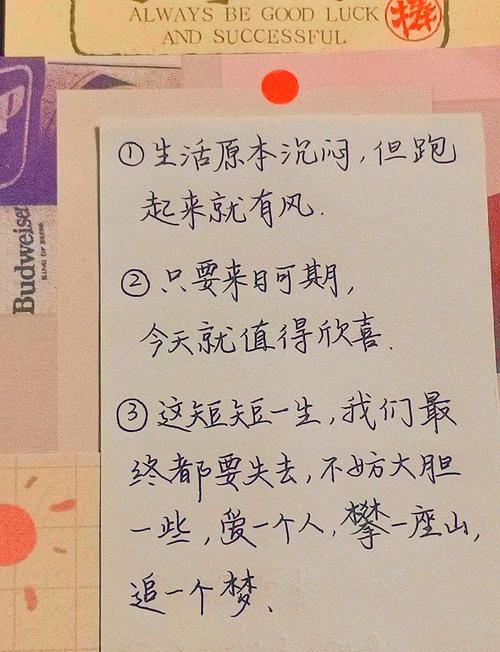 ALWAYS BE GOOD LUCK
AND SUCCESSFUL
①生活原本沉闷，但跑
起来就有风.
②只要来日可期，
今天就值得欣喜.
③这短短一生，我们最
终都要失去，不妨大胆
一些，爱一个人，攀一座山，
追一个梦、
Budweiser
KING OF BEERS